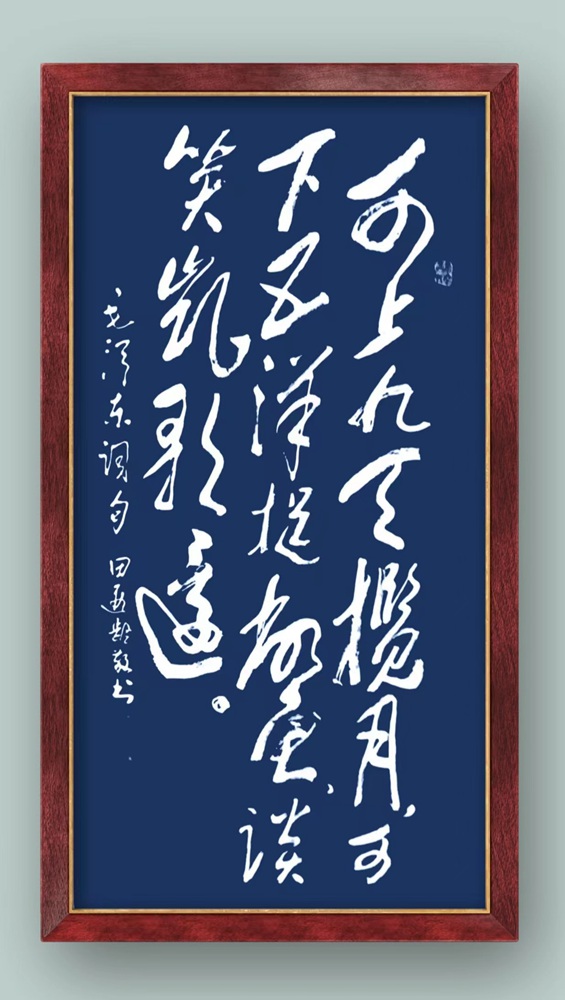 可上九天揽月，可
下五洋捉鳖，谈
笑凯歌还。
毛泽东词句 田遇龄敬书